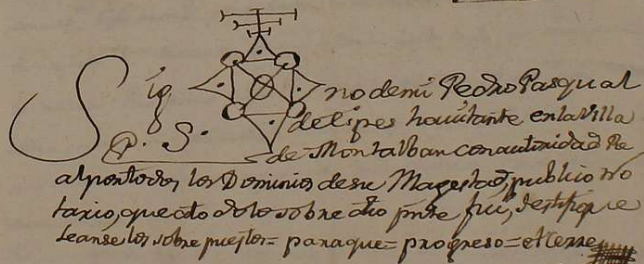 Sig no de mi Pedro Pasqual
P. S. de Lipes hauitante en la Villa
de Montalban con autoridad Re
al por todos los Dominios de su Magestad, publico no
tario, que a todo lo sobre dho pnte fui, testifique
leanse los sobre puestos = para que = progreso = et cerre